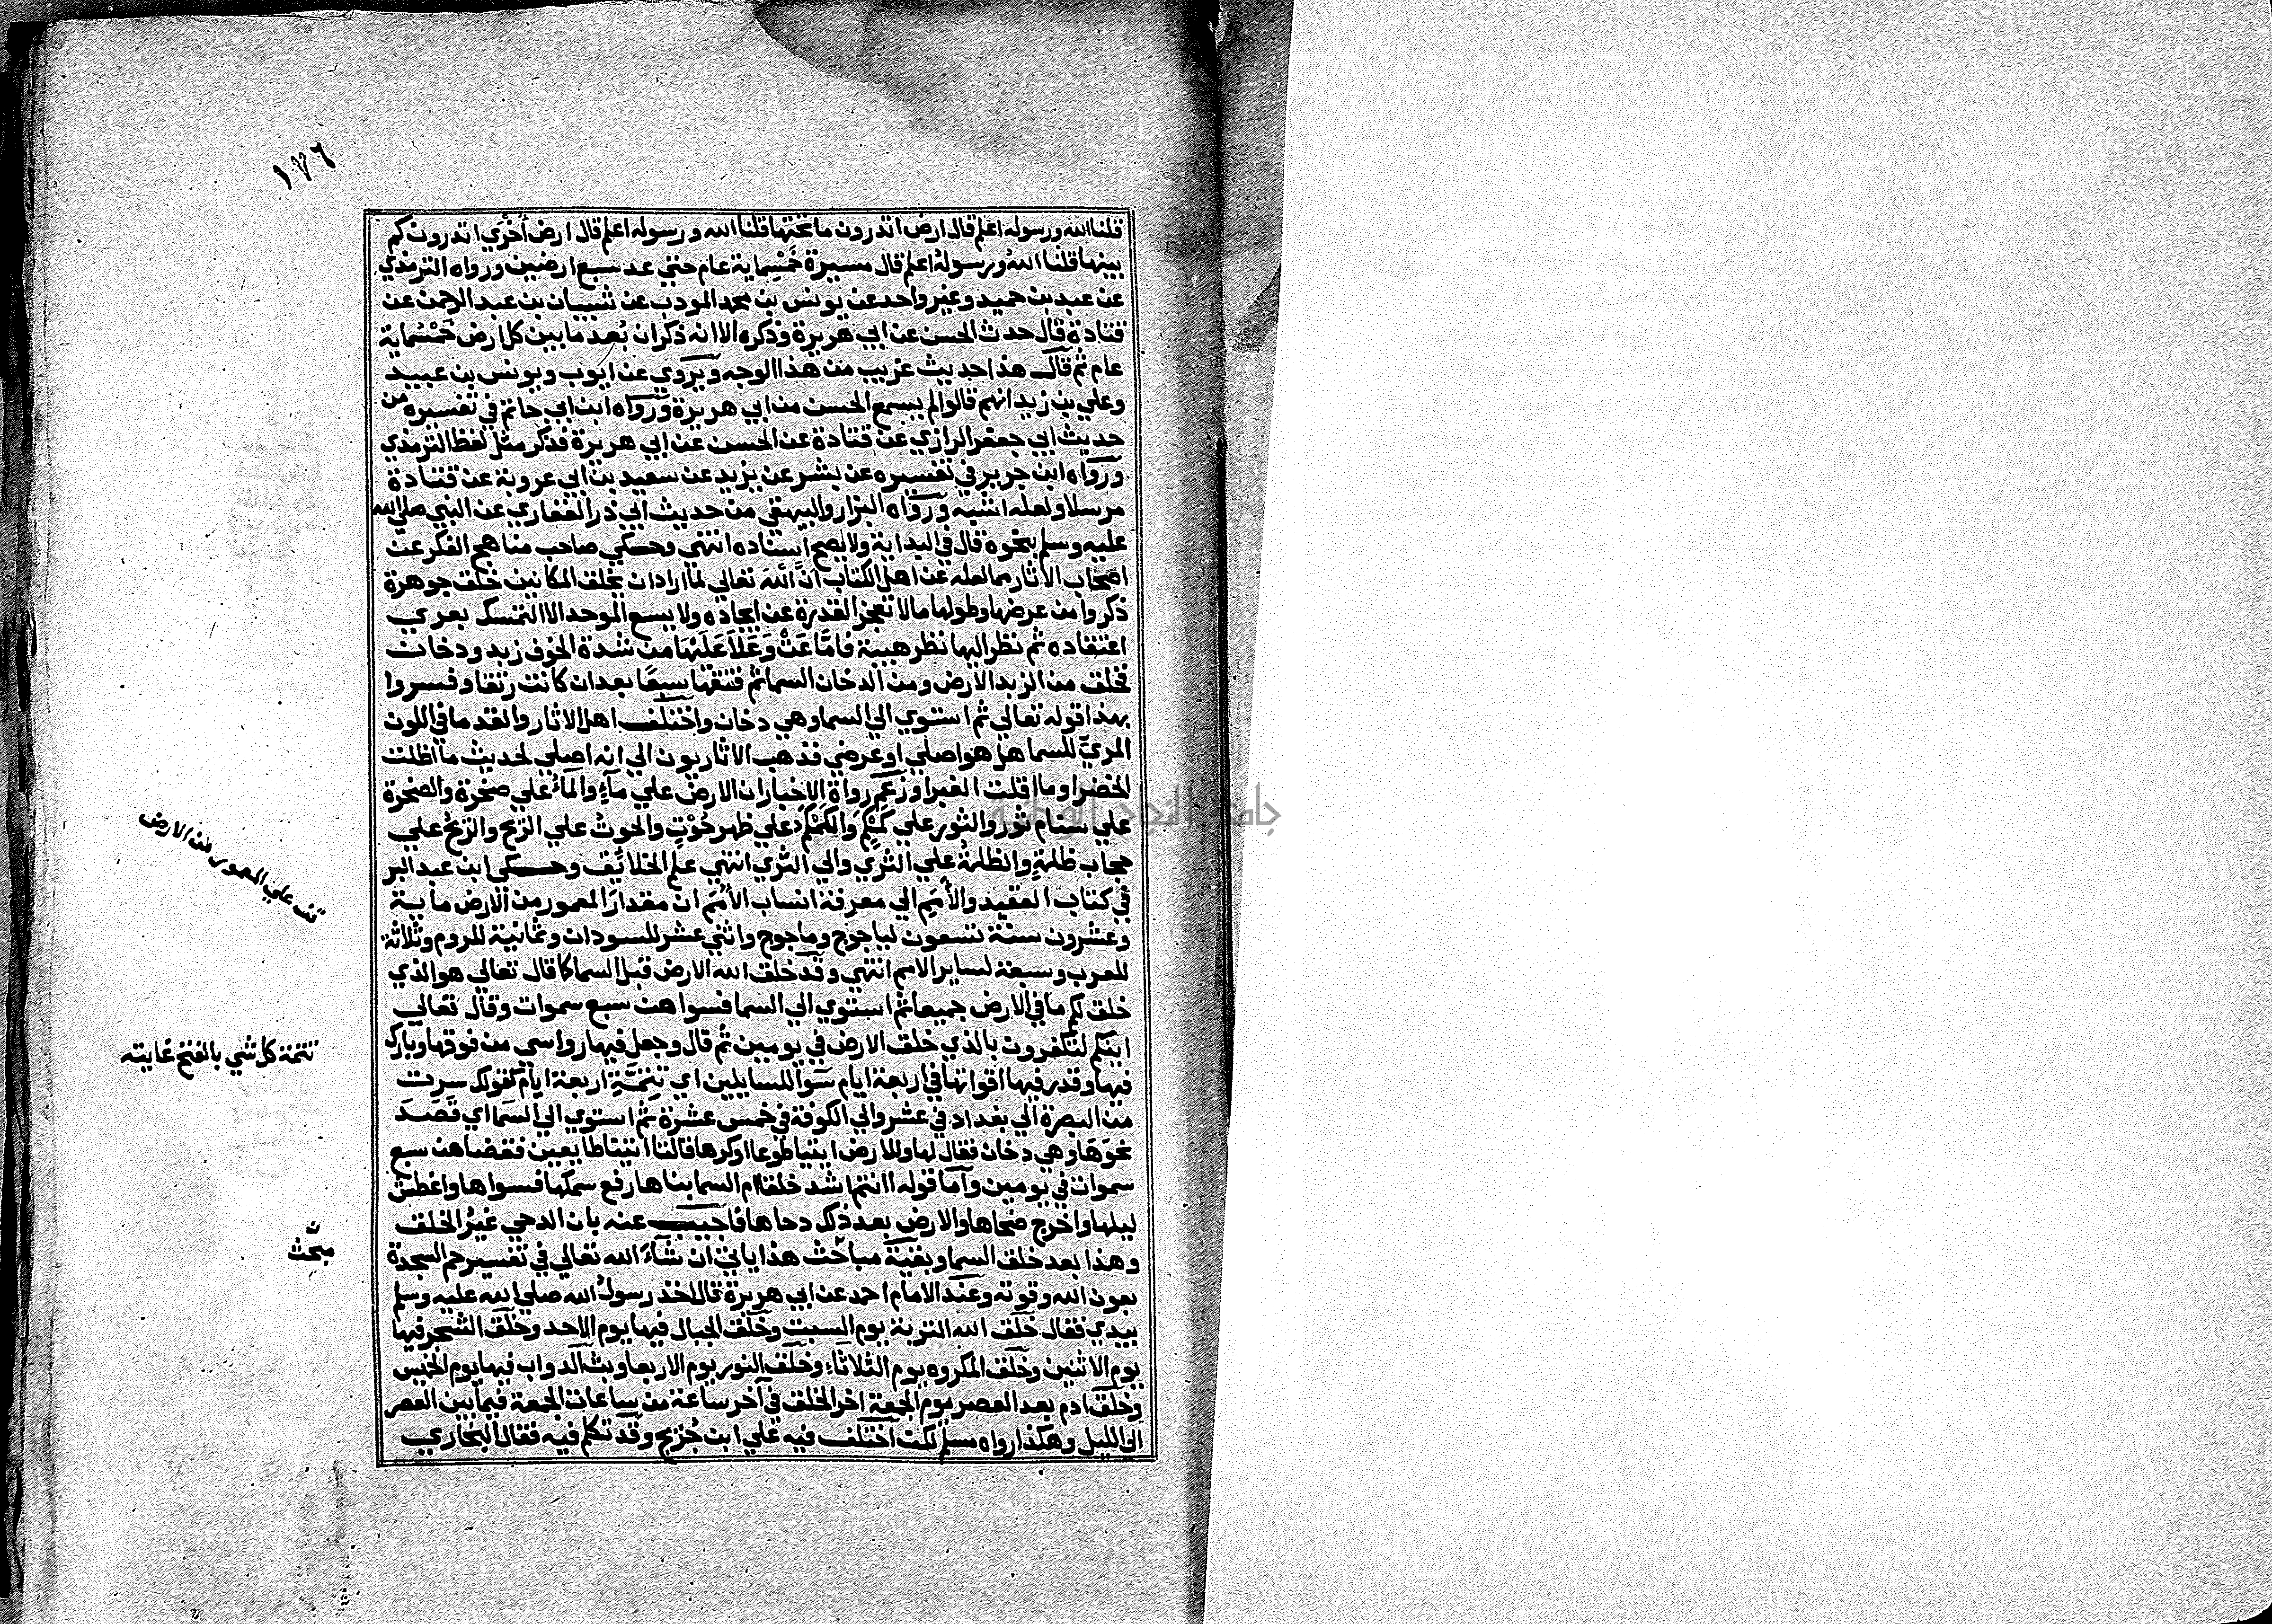 ١٧٦
قلنا الله ورسوله اعلم قال ارض اتدرون ما تحتها قلنا الله ورسوله اعلم قال ارض أخري اتدرون كم
بينها قلنا الله ورسوله اعلم قال مسيرة خمسماية عام حتي عد سبع ارضين ورواه الترمذي
عن عبد بن حميد وغير واحد عن يونس بن محمد المودب عن شيبان بن عبد الرحمن عن
قتادة قال حدث الحسن عن ابي هريرة وذكره الا انه ذكر ان بُعد ما بين كل ارض خمسماية
عام ثم قال هذا حديث غريب من هذا الوجه ويروي عن ايوب ويونس بن عبيد
وعلي بن زيد انهم قالوا لم يسمع الحسن من ابي هريرة ورواه ابن ابي حاتم في تفسيره من
حديث ابي جعفر الرازي عن قتادة عن الحسن عن ابي هريرة فذكر مثل لفظ الترمذي
ورواه ابن جرير في تفسيره عن بشر عن يزيد عن سعيد بن ابي عروبة عن قتادة
مرسلا ولعله اشبه ورواه البزار والبيهقي من حديث ابي ذر الغفاري عن النبي صلي الله
عليه وسلم بنحوه قال في البداية ولا يصح اسناده انتهي وحكي صاحب مناهج الفكر عن
اصحاب الاثار مما لعله عن اهل الكتاب انّ الله تعالي لما اراد ان يخلق المكانين خلق جوهرة
ذكروا من عرضها وطولها ما لا تعجز القدرة عن ايجاده ولا يسع الموحد الا التمسك بعري
اعتقاده ثم نظر اليها نظر هيبة فامّاعَتْ وَعَلاَ عَلَيْهَا من شدة الخوف زبد ودخان
فخلق من الزبد الارض ومن الدخان السما ثم فتقها سبعًا بعد ان كانت رتقا وفسروا
بهذا قوله تعالي ثم استوي الي السما وهي دخان واختلف اهل الاثار والقدما في اللون
المريّ للسما هل هو اصلي او عرضي فذهب الاثاريون الي انه اصلي لحديث ما اظلت
الخضرا وما اقلت الغبرا وزعم رواة الاخبار ان الارض علي مآءٍ والمآءُ علي صخرة والصخرة
علي سنام ثور والثور علي كَمْكَمٍ وَالكَمْكَمُ علي ظهر حُوْتٍ والحوتُ علي الريح والريحُ علي
حجاب ظلمةٍ والظلمةُ علي الثري والي الثري انتهي علم الخلائق وحكي ابن عبد البر
في كتاب القصد والأَمَمِ الي معرفة انساب الأُمَم ان مقدار المعمور من الارض ماية
وعشرون سنة تسعون لياجوج وماجوج واثني عشر للسودان وثمانية للروم وثلاثة
للعرب وسبعة لساير الامم انتهي وقد خلق الله الارض قبل السما كما قال تعالي هو الذي
خلق لكم ما في الارض جميعا ثم استوي الي السما فسواهن سبع سموات وقال تعالي
اينكم لتكفرون بالذي خلق الارض في يومين ثم قال وجعل فيها رواسي من فوقها وبارك
فيها وقدر فيها اقواتها في اربعة ايام سَوا للسايلين اي تَتِمَّةِ اربعة ايام كقولك سرت
من البصرة الي بغداد في عشر والي الكوفة في خمس عشرة ثم استوي الي السَما اي قَصَدَ
نحوَهَا وهي دخان فقال لها وللارض ايتيا طوعا او كرها قالتا اتينا طايعين فقضاهن سبع
سموات في يومين وأما قوله اانتم اشد خلقا ام السما بناها رفع سمكها فسواها واغطش
ليلها واخرج ضحاها والارض بعد ذلك دحاها فاجيب عنه بان الدحي غيرُ الخلق
وهذا بعد خلق السما وبقية مباحث هذا ياتي ان شآءَ الله تعالي في تفسير حم السجدة
بعون الله وقوته وعند الامام احمد عن ابي هريرة قال اخذ رسولُ الله صلي الله عليه وسلم
بيدي فقال خلق الله التربة يوم السبت وخلق الجبال فيها يوم الاحد وخلق الشجر فيها
يوم الاثنين وخلق المكروه يوم الثلاثاءِ وخلق النور يوم الاربعا وبث الدواب فيها يوم الخميس
وخلق ادم بعد العصر يوم الجمعة اخر الخلق في آخر ساعة من ساعات الجمعة فيما بين العصر
الي الليل وهكذا رواه مسلم لكن اختلف فيه علي ابن جُرَيج وقد تكلم فيه فقال البخاري
قف علي المعمور من الارض
تتمة كل شي بالفتح غايته
مبحث
جامعة النجاح الوطنية